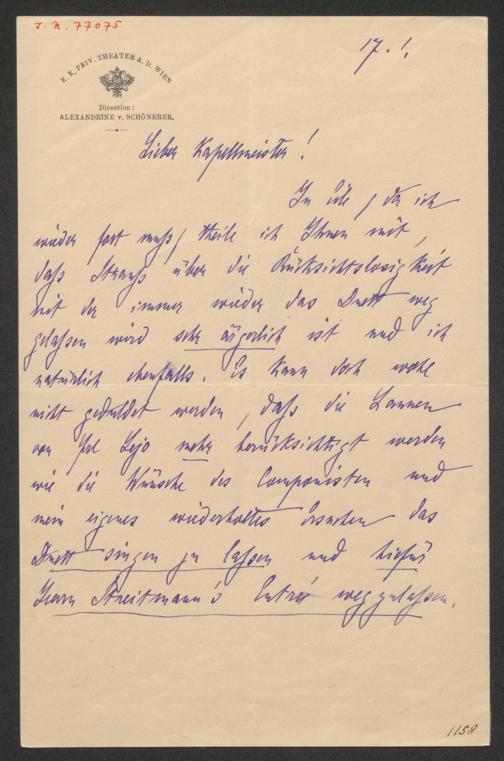 J. N. 77075
17. 1.
K. K. PRIV. THEATER A. D. WIEN
Direction:
ALEXANDRINE v. SCHÖNERER.
Lieber Kapellmeister!
In Eile, da ich
wieder fort muß, theile ich Ihnen mit,
daß Strauß über die Rücksichtslosigkeit
mit der immer wieder das Duett weg
gelaßen wird sehr ärgerlich ist und ich
natürlich ebenfalls. Es kann doch wohl
nicht geduldet werden, daß die Launen
von Frl Lejo mehr berücksichtigt werden
wie die Wünsche des Componisten und
mein eigenes wiederholtes Ersuchen das
Duett singen zu laßen und
Herrn Streitmann's Entrée weggelaßen.
1158